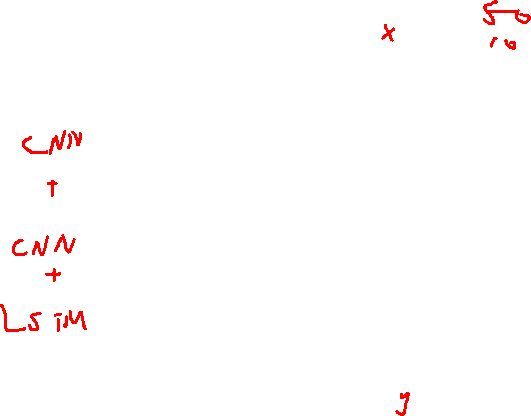 x
10
CNN
+
CNN
+
LSTM
y